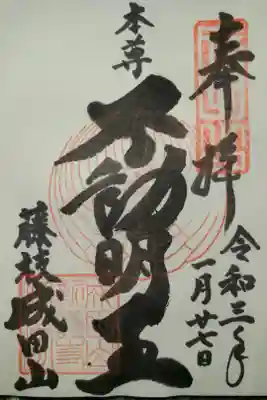 奉拝
令和三年
一月廿七日
本尊
不動明王
藤枝成田山